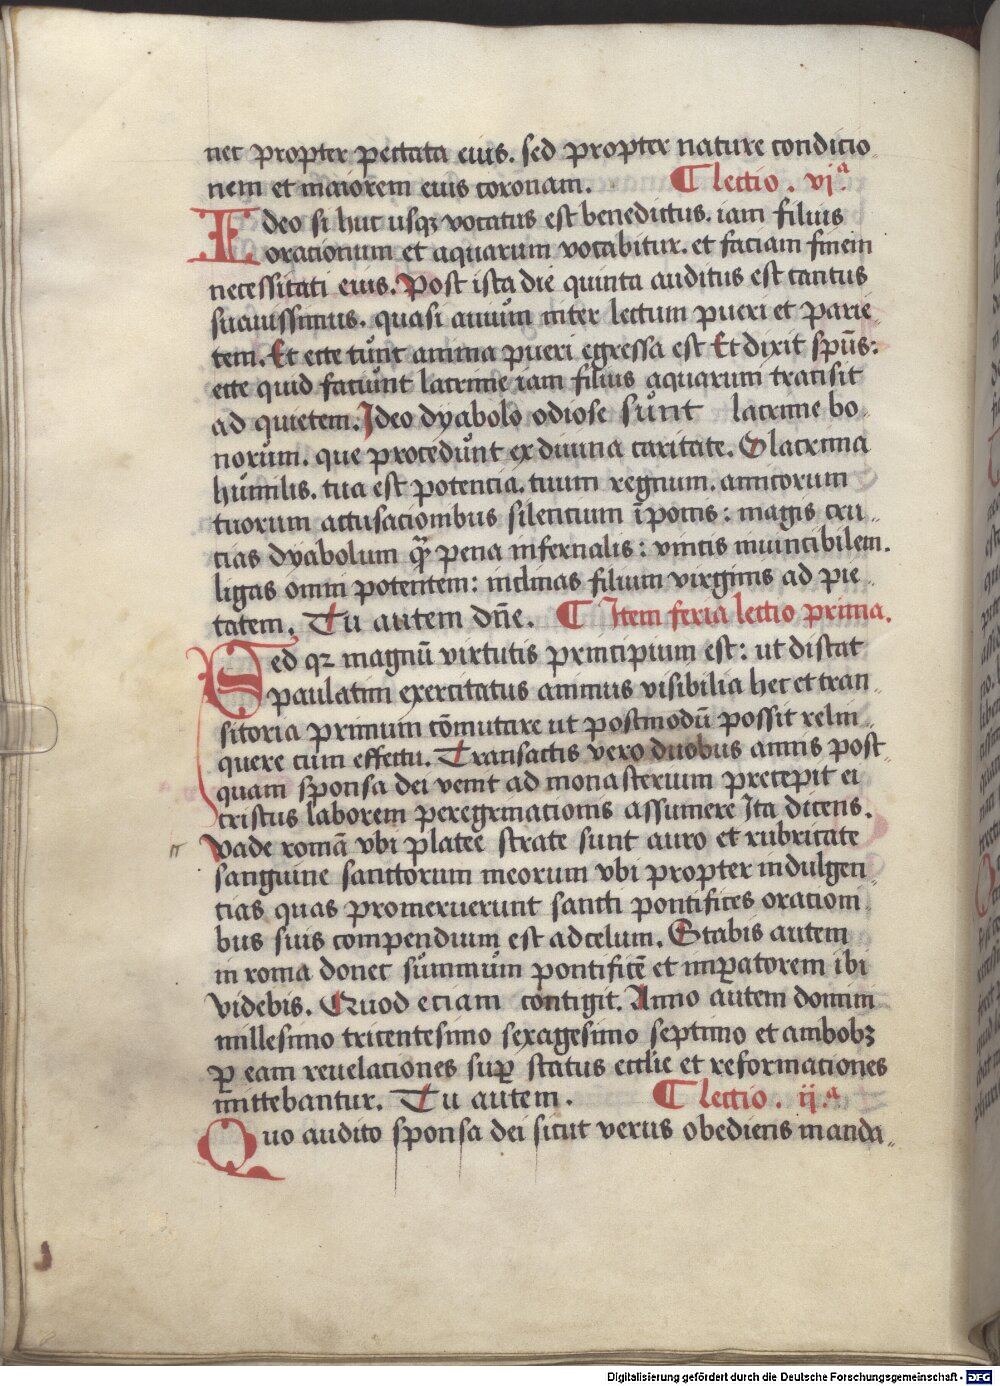 nec propter peccata eius. sed propter nature condicio
nem et maiorem eius coronam. Lectio. vjª.
Ideo si huc usqꝫ vocatus est benedictus. iam filius
orationum et aquarum vocabitur. et faciam finem
necessitati eius. Post ista die quinta auditus est cantus
suauissimus. quasi auium inter lectum pueri et parie
tem. Et ecce tunc anima pueri egressa est Et dixit spūs:
ecce quid faciunt lacrime iam filius aquarum transit
ad quietem. Ideo dyabolo odiose sunt lacrime bo
norum. que procedunt ex diuina caritate. O lacrima
humilis. tua est potencia. tuum regnum. amicorum
tuorum accusacionibus silencium īponis: magis cru
cias dyabolum qͣꝫ pena infernalis: vincis inuincibilem.
ligas omni potentem: inclinas filium virginis ad pie
tatem. Tu autem dn̄e. Item feria lectio prima.
Sed qꝛ magnū virtutis principium est: ut discat
paulatim exercitatus animus visibilia hec et tran
sitoria primum cōmutare ut postmodū possit relin
quere cum effectu. Transactis vero duobus annis post
quam sponsa dei venit ad monasterium precepit ei
cristus laborem peregrinacionis assumere Ita dicens.
vade romā vbi platee strate sunt auro et rubricate
sanguine sanctorum meorum vbi propter indulgen
cias quas promeruerunt sancti pontifices oracioni
bus suis compendium est ad celum. Stabis autem
in roma donec summum pontificē et imꝑatorem ibi
videbis. Quod eciam contigit. Anno autem domini
millesimo tricentesimo sexagesimo septimo et ambobꝫ
ꝑ eam reuelaciones suꝑ status ecclīe et reformaciones
mittebantur. Tu autem. Lectio. ijª
Quo audito sponsa dei sicut verus obediens manda
Digitalisierung gefördert durch die Deutsche Forschungsgemeinschaft - DFG